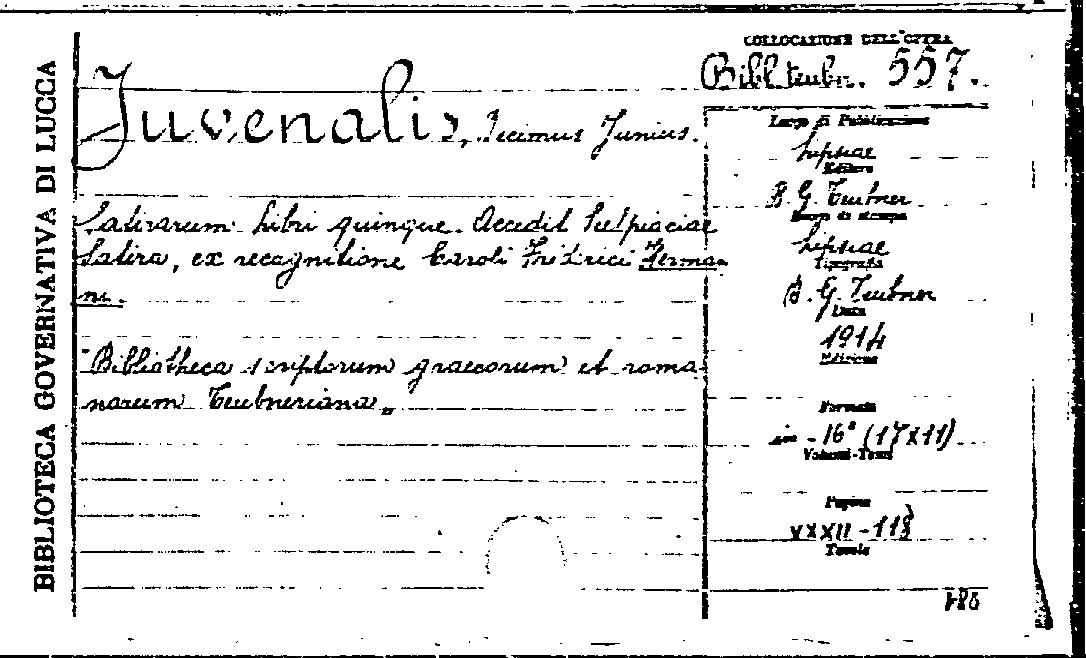 BIBLIOTECA GOVERNATIVA DI LUCCA
COLLOCAZIONE DELL'OPERA
Bibl. teubn. 557.
Juvenalis, Decimus Junius.
Satirarum libri quinque. Accedit Sulpiaciae
Satira, ex recagnitione Caroli Fridrici Herman
ni.
"Bibliotheca scriptorum graecorum et roma
narum Teubneriana„
Luogo di Pubblicazione
Lipsiae
Editore
B. G. Teubner
Luogo di stampa
Lipsiae
Tipografia
B. G. Teubner
Data
1914
Edizione
Formato
in - 16° (17x11)
Volumi-Tomi
Pagine
XXXII - 118
Tavole